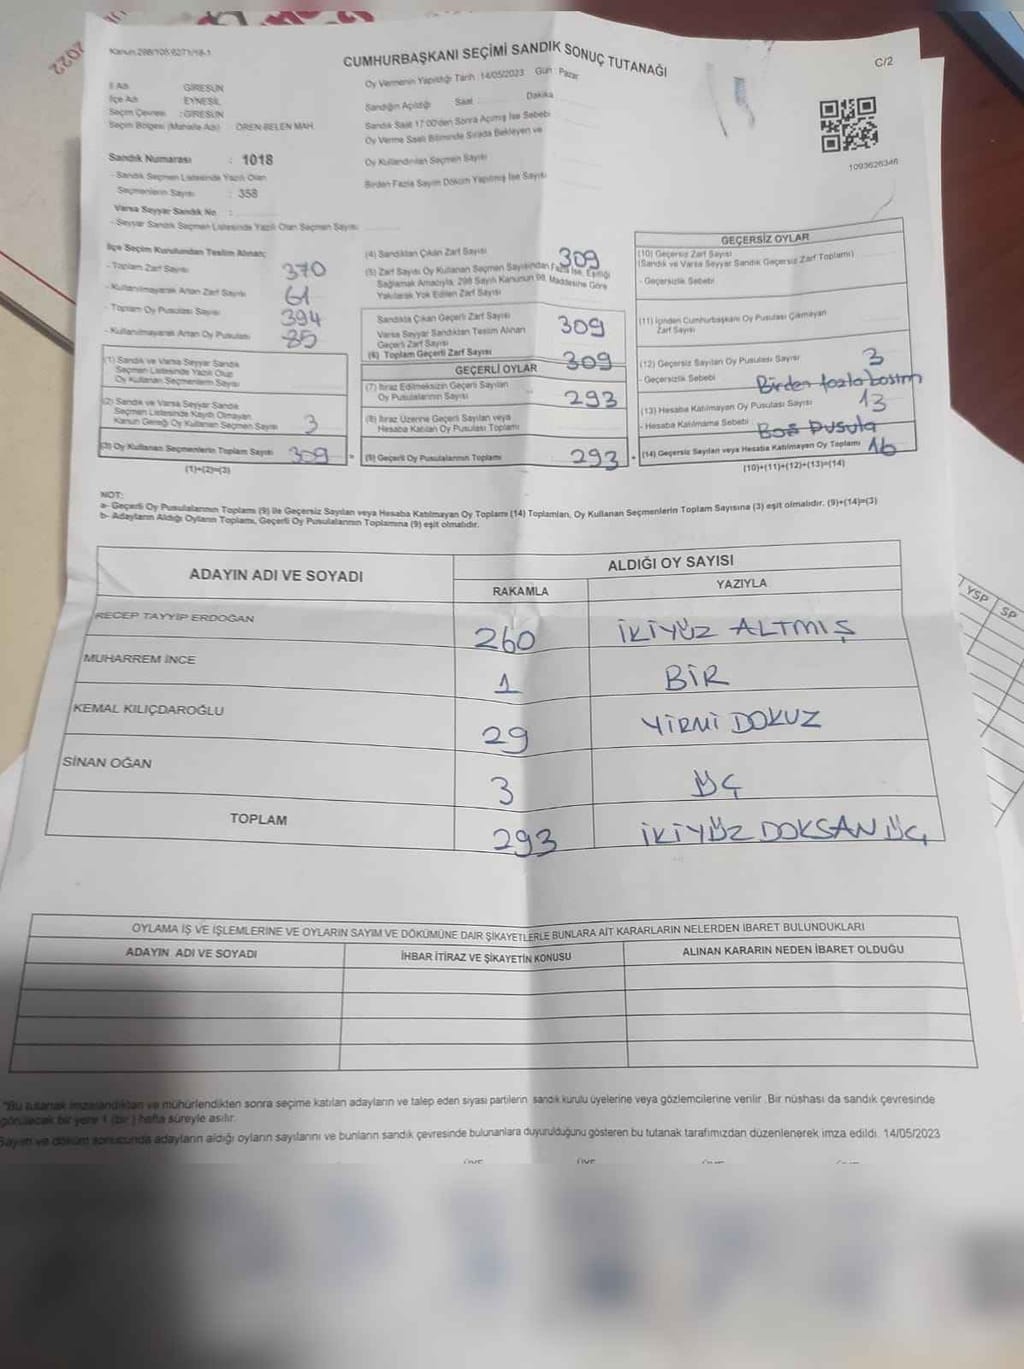 2022
Kanun 298/105-6271/18-1
CUMHURBAŞKANI SEÇİMİ SANDIK SONUÇ TUTANAĞI
C/2
Oy Vermenin Yapıldığı Tarih :14/05/2023 Gün : Pazar
İl Adı GİRESUN
İlçe Adı EYNESİL
Seçim Çevresi :GİRESUN
Seçim Bölgesi (Mahalle Adı) ÖREN-BELEN MAH.
Sandığın Açıldığı Saat Dakika
Sandık Saat 17:00'den Sonra Açılmış İse Sebebi
Oy Verme Saati Bitiminde Sırada Bekleyen ve
Oy Kullandırılan Seçmen Sayısı
Birden Fazla Sayım Döküm Yapılmış İse Sayısı
1093626346
Sandık Numarası : 1018
- Sandık Seçmen Listesinde Yazılı Olan
Seçmenlerin Sayısı : 358
Varsa Seyyar Sandık No :
- Seyyar Sandık Seçmen Listesinde Yazılı Olan Seçmen Sayısı
İlçe Seçim Kurulundan Teslim Alınan;
- Toplam Zarf Sayısı 370
- Kullanılmayarak Artan Zarf Sayısı 61
- Toplam Oy Pusulası Sayısı 394
- Kullanılmayarak Artan Oy Pusulası 85
(1) Sandık ve Varsa Seyyar Sandık
Seçmen Listesinde Yazılı Olup
Oy Kullanan Seçmenlerin Sayısı
(2) Sandık ve Varsa Seyyar Sandık
Seçmen Listesinde Kayıtlı Olmayan
Kanun Gereği Oy Kullanan Seçmen Sayısı 3
(3) Oy Kullanan Seçmenlerin Toplam Sayısı 309
(1)+(2)=(3)
(4) Sandıktan Çıkan Zarf Sayısı 309
(5) Zarf Sayısı Oy Kullanan Seçmen Sayısından Fazla İse, Eşitliği
Sağlamak Amacıyla, 298 Sayılı Kanunun 98. Maddesine Göre
Yakılarak Yok Edilen Zarf Sayısı
Sandıkta Çıkan Geçerli Zarf Sayısı 309
Varsa Seyyar Sandıktan Teslim Alınan
Geçerli Zarf Sayısı
(6) Toplam Geçerli Zarf Sayısı 309
GEÇERLİ OYLAR
(7) İtiraz Edilmeksizin Geçerli Sayılan
Oy Pusulalarının Sayısı 293
(8) İtiraz Üzerine Geçerli Sayılan veya
Hesaba Katılan Oy Pusulası Toplamı
(9) Geçerli Oy Pusulalarının Toplamı 293
GEÇERSİZ OYLAR
(10) Geçersiz Zarf Sayısı
(Sandık ve Varsa Seyyar Sandık Geçersiz Zarf Toplamı)
- Geçersizlik Sebebi
(11) İçinden Cumhurbaşkanı Oy Pusulası Çıkmayan
Zarf Sayısı
(12) Geçersiz Sayılan Oy Pusulası Sayısı 3
- Geçersizlik Sebebi Birden fazla basım
(13) Hesaba Katılmayan Oy Pusulası Sayısı 13
- Hesaba Katılmama Sebebi : Boş Pusula
(14) Geçersiz Sayılan veya Hesaba Katılmayan Oy Toplamı 16
(10)+(11)+(12)+(13)=(14)
NOT:
a- Geçerli Oy Pusulalarının Toplamı (9) ile Geçersiz Sayılan veya Hesaba Katılmayan Oy Toplamı (14) Toplamları, Oy Kullanan Seçmenlerin Toplam Sayısına (3) eşit olmalıdır. (9)+(14)=(3)
b- Adayların Aldığı Oyların Toplamı, Geçerli Oy Pusulalarının Toplamına (9) eşit olmalıdır.
ADAYIN ADI VE SOYADI ALDIĞI OY SAYISI
RAKAMLA YAZIYLA
RECEP TAYYİP ERDOĞAN 260 İKİYÜZ ALTMIŞ
MUHARREM İNCE 1 BİR
KEMAL KILIÇDAROĞLU 29 YİRMİ DOKUZ
SİNAN OĞAN 3 ÜÇ
TOPLAM 293 İKİYÜZ DOKSAN ÜÇ
YSP SP
OYLAMA İŞ VE İŞLEMLERİNE VE OYLARIN SAYIM VE DÖKÜMÜNE DAİR ŞİKAYETLERLE BUNLARA AİT KARARLARIN NELERDEN İBARET BULUNDUKLARI
ADAYIN ADI VE SOYADI İHBAR İTİRAZ VE ŞİKAYETİN KONUSU ALINAN KARARIN NEDEN İBARET OLDUĞU
"Bu tutanak imzalandıktan ve mühürlendikten sonra seçime katılan adayların ve talep eden siyasi partilerin sandık kurulu üyelerine veya gözlemcilerine verilir. Bir nüshası da sandık çevresinde
görülecek bir yere 1 (bir ) hafta süreyle asılır.
Sayım ve döküm sonucunda adayların aldığı oyların sayılarını ve bunların sandık çevresinde bulunanlara duyurulduğunu gösteren bu tutanak tarafımızdan düzenlenerek imza edildi. 14/05/2023